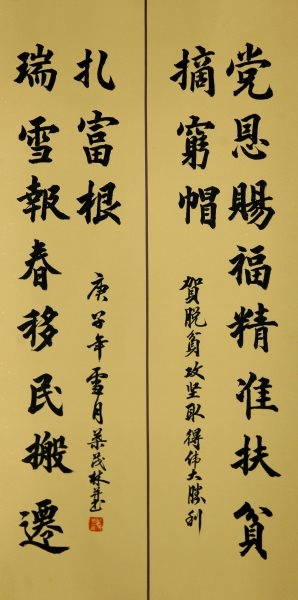 党恩賜福精准扶貧
摘窮帽
賀脱貧攻坚取得伟大勝利
瑞雪報春移民搬遷
扎富根
庚子年雪月葉茂林